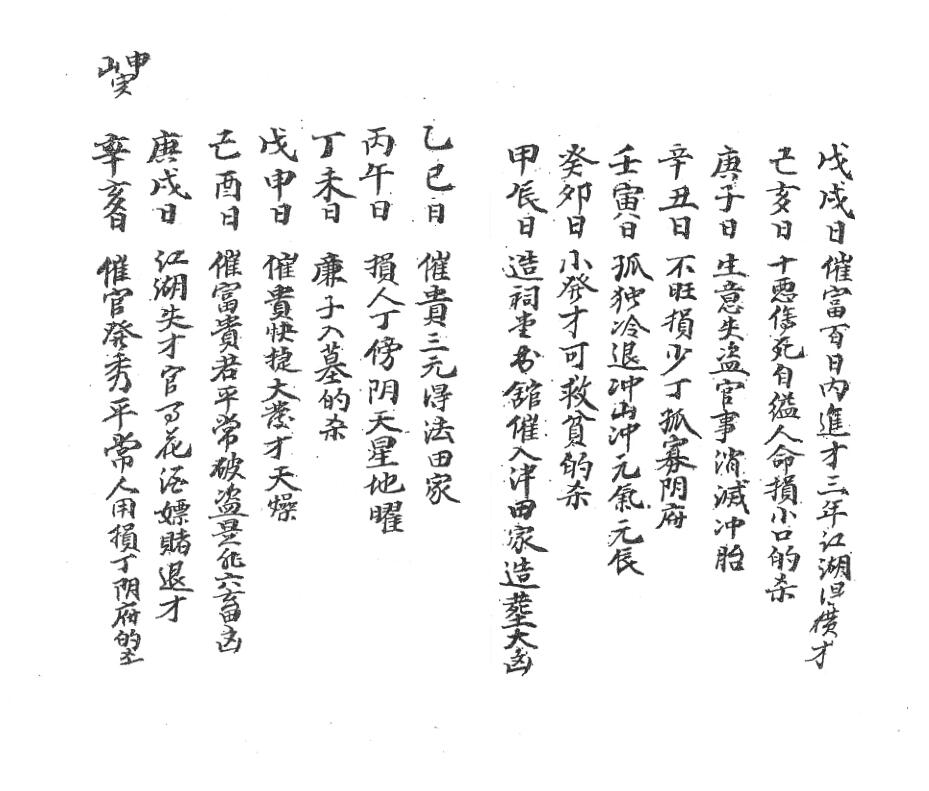 戊戌日 催富百日内進才三年江湖得横才
己亥日 十悪傷死自缢人命損小口的杀
庚子日 生意失盗官事消滅冲胎
辛丑日 不旺損少丁孤寡阴府
壬寅日 孤独冷退冲山冲元氣元辰
癸卯日 小發才可救貧的杀
甲辰日 造祠堂书館催入泮田家造塟大凶
乙巳日 催貴三元得法田家
丙午日 損人丁傍阴天星地曜
丁未日 廉子入墓的杀
戊申日 催貴快捷大發才天燥
己酉日 催富貴若平常破盗是非六畜凶
庚戌日 江湖失才官司花酒嫖賭退才
辛亥日 催官發秀平常人用損丁阴府的
申山